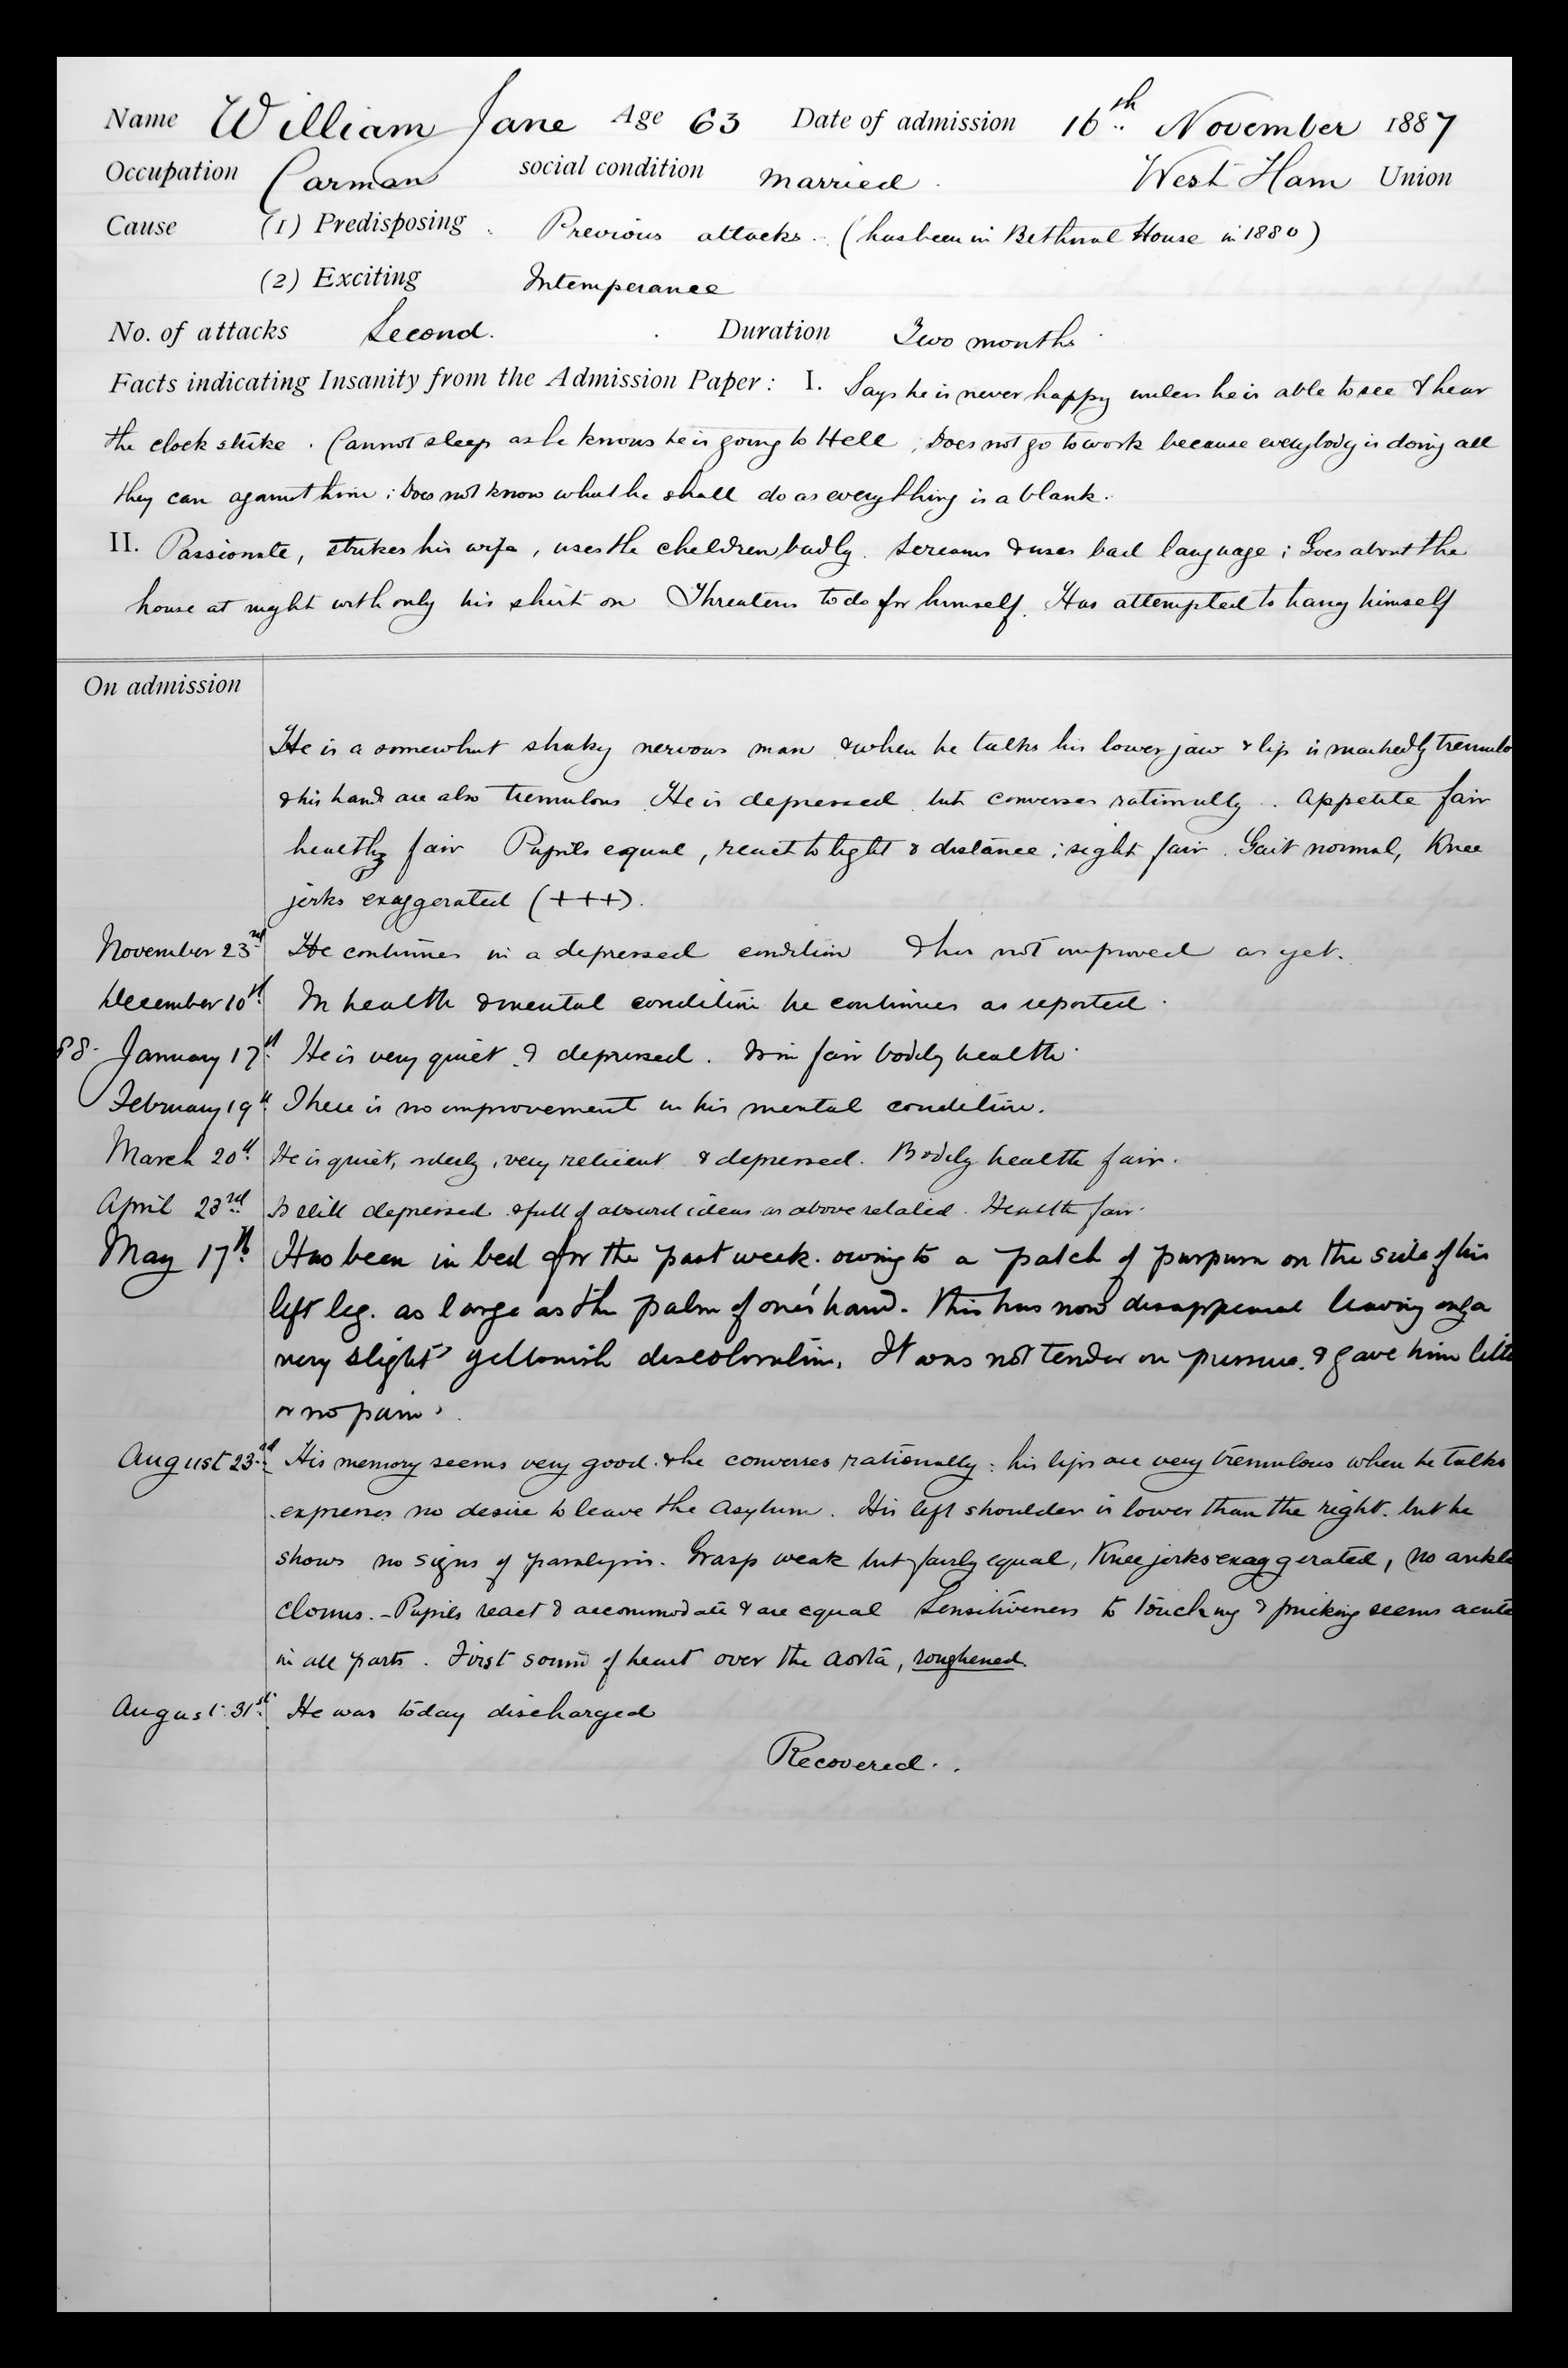 Name William Jane Age 63 Date of admission 16th November 1887
Occupation Carman social condition Married. West Ham Union
Cause (1) Predisposing. Previous attacks. (has been in Bethnal House in 1880)
(2) Exciting Intemperance
No. of attacks Second. Duration Two months
Facts indicating Insanity from the Admission Paper: I. Says he is never happy unless he is able to see & hear
the clock strike. Cannot sleep as he knows he is going to Hell; Does not go to work because everybody is doing all
they can against him; Does not know what he shall do as everything is a blank.
II. Passionate, strikes his wife, uses the children badly. Screams & uses bad language; Goes about the
house at night with only his shirt on Threatens to do for himself. Has attempted to hang himself
On admission
He is a somewhat shaky nervous man & when he talks his lower jaw & lip is markedly tremulo
& his hands are also tremulous. He is depressed but converses rationally. Appetite fair
healthy fair Pupils equal, react to light & distance; sight fair. Gait normal, Knee
jerks exaggerated (+++).
November 23rd He continues in a depressed condition & has not improved as yet.
December 10th In health & mental condition he continues as reported.
88. January 17th He is very quiet & depressed. Is in fair bodily health.
February 19th There is no improvement in his mental condition.
March 20th He is quiet, orderly, very reticent & depressed. Bodily health fair.
April 23rd Is still depressed & full of absurd ideas as above related. Health fair.
May 17th Has been in bed for the past week. owing to a patch of purpura on the side of his
left leg. as large as the palm of one's hand. This has now disappeared leaving only a
very slight yellowish discoloration. It was not tender on pressure. & gave him little
or no pain.
August 23rd His memory seems very good. & he converses rationally: his lips are very tremulous when he talks
expresses no desire to leave the asylum. His left shoulder is lower than the right. but he
shows no signs of paralysis. Grasp weak but fairly equal, Knee jerks exaggerated, no ankle
clonus. - Pupils react & accommodate & are equal Sensitiveness to touching & pricking seems acute
in all parts. First sound of heart over the aorta, roughened.
August 31st He was today discharged
Recovered.